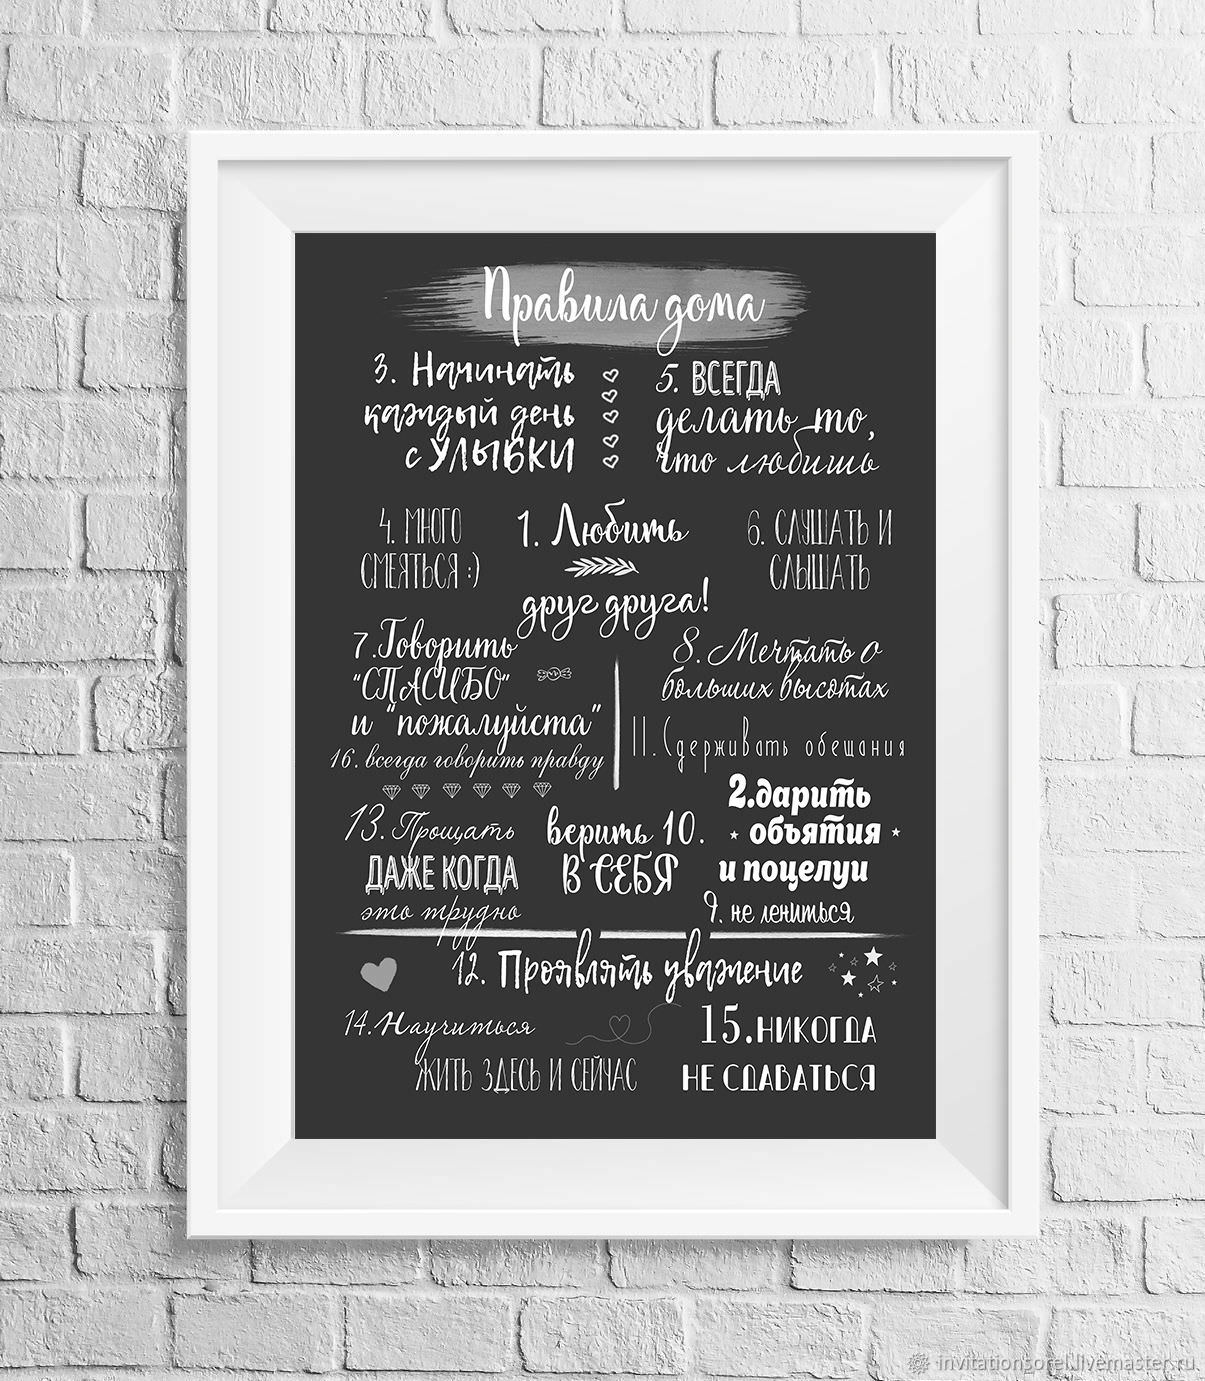 Правила дома
3. Начинать
каждый день
с УЛЫБКИ
5. ВСЕГДА
делать то,
что любишь
4. МНОГО
СМЕЯТЬСЯ :)
1. Любить
друг друга!
6. СЛУШАТЬ И
СЛЫШАТЬ
7. Говорить
"СПАСИБО"
и "пожалуйста"
16. всегда говорить правду
8. Мечтать о
больших высотах
11. Сдерживать обещания
13. Прощать
ДАЖЕ КОГДА
это трудно
верить 10.
В СЕБЯ
2. дарить
объятия
и поцелуи
9. не лениться
12. Проявлять уважение
14. Научиться
ЖИТЬ ЗДЕСЬ И СЕЙЧАС
15. НИКОГДА
НЕ СДАВАТЬСЯ
invitationsorel.livemaster.ru